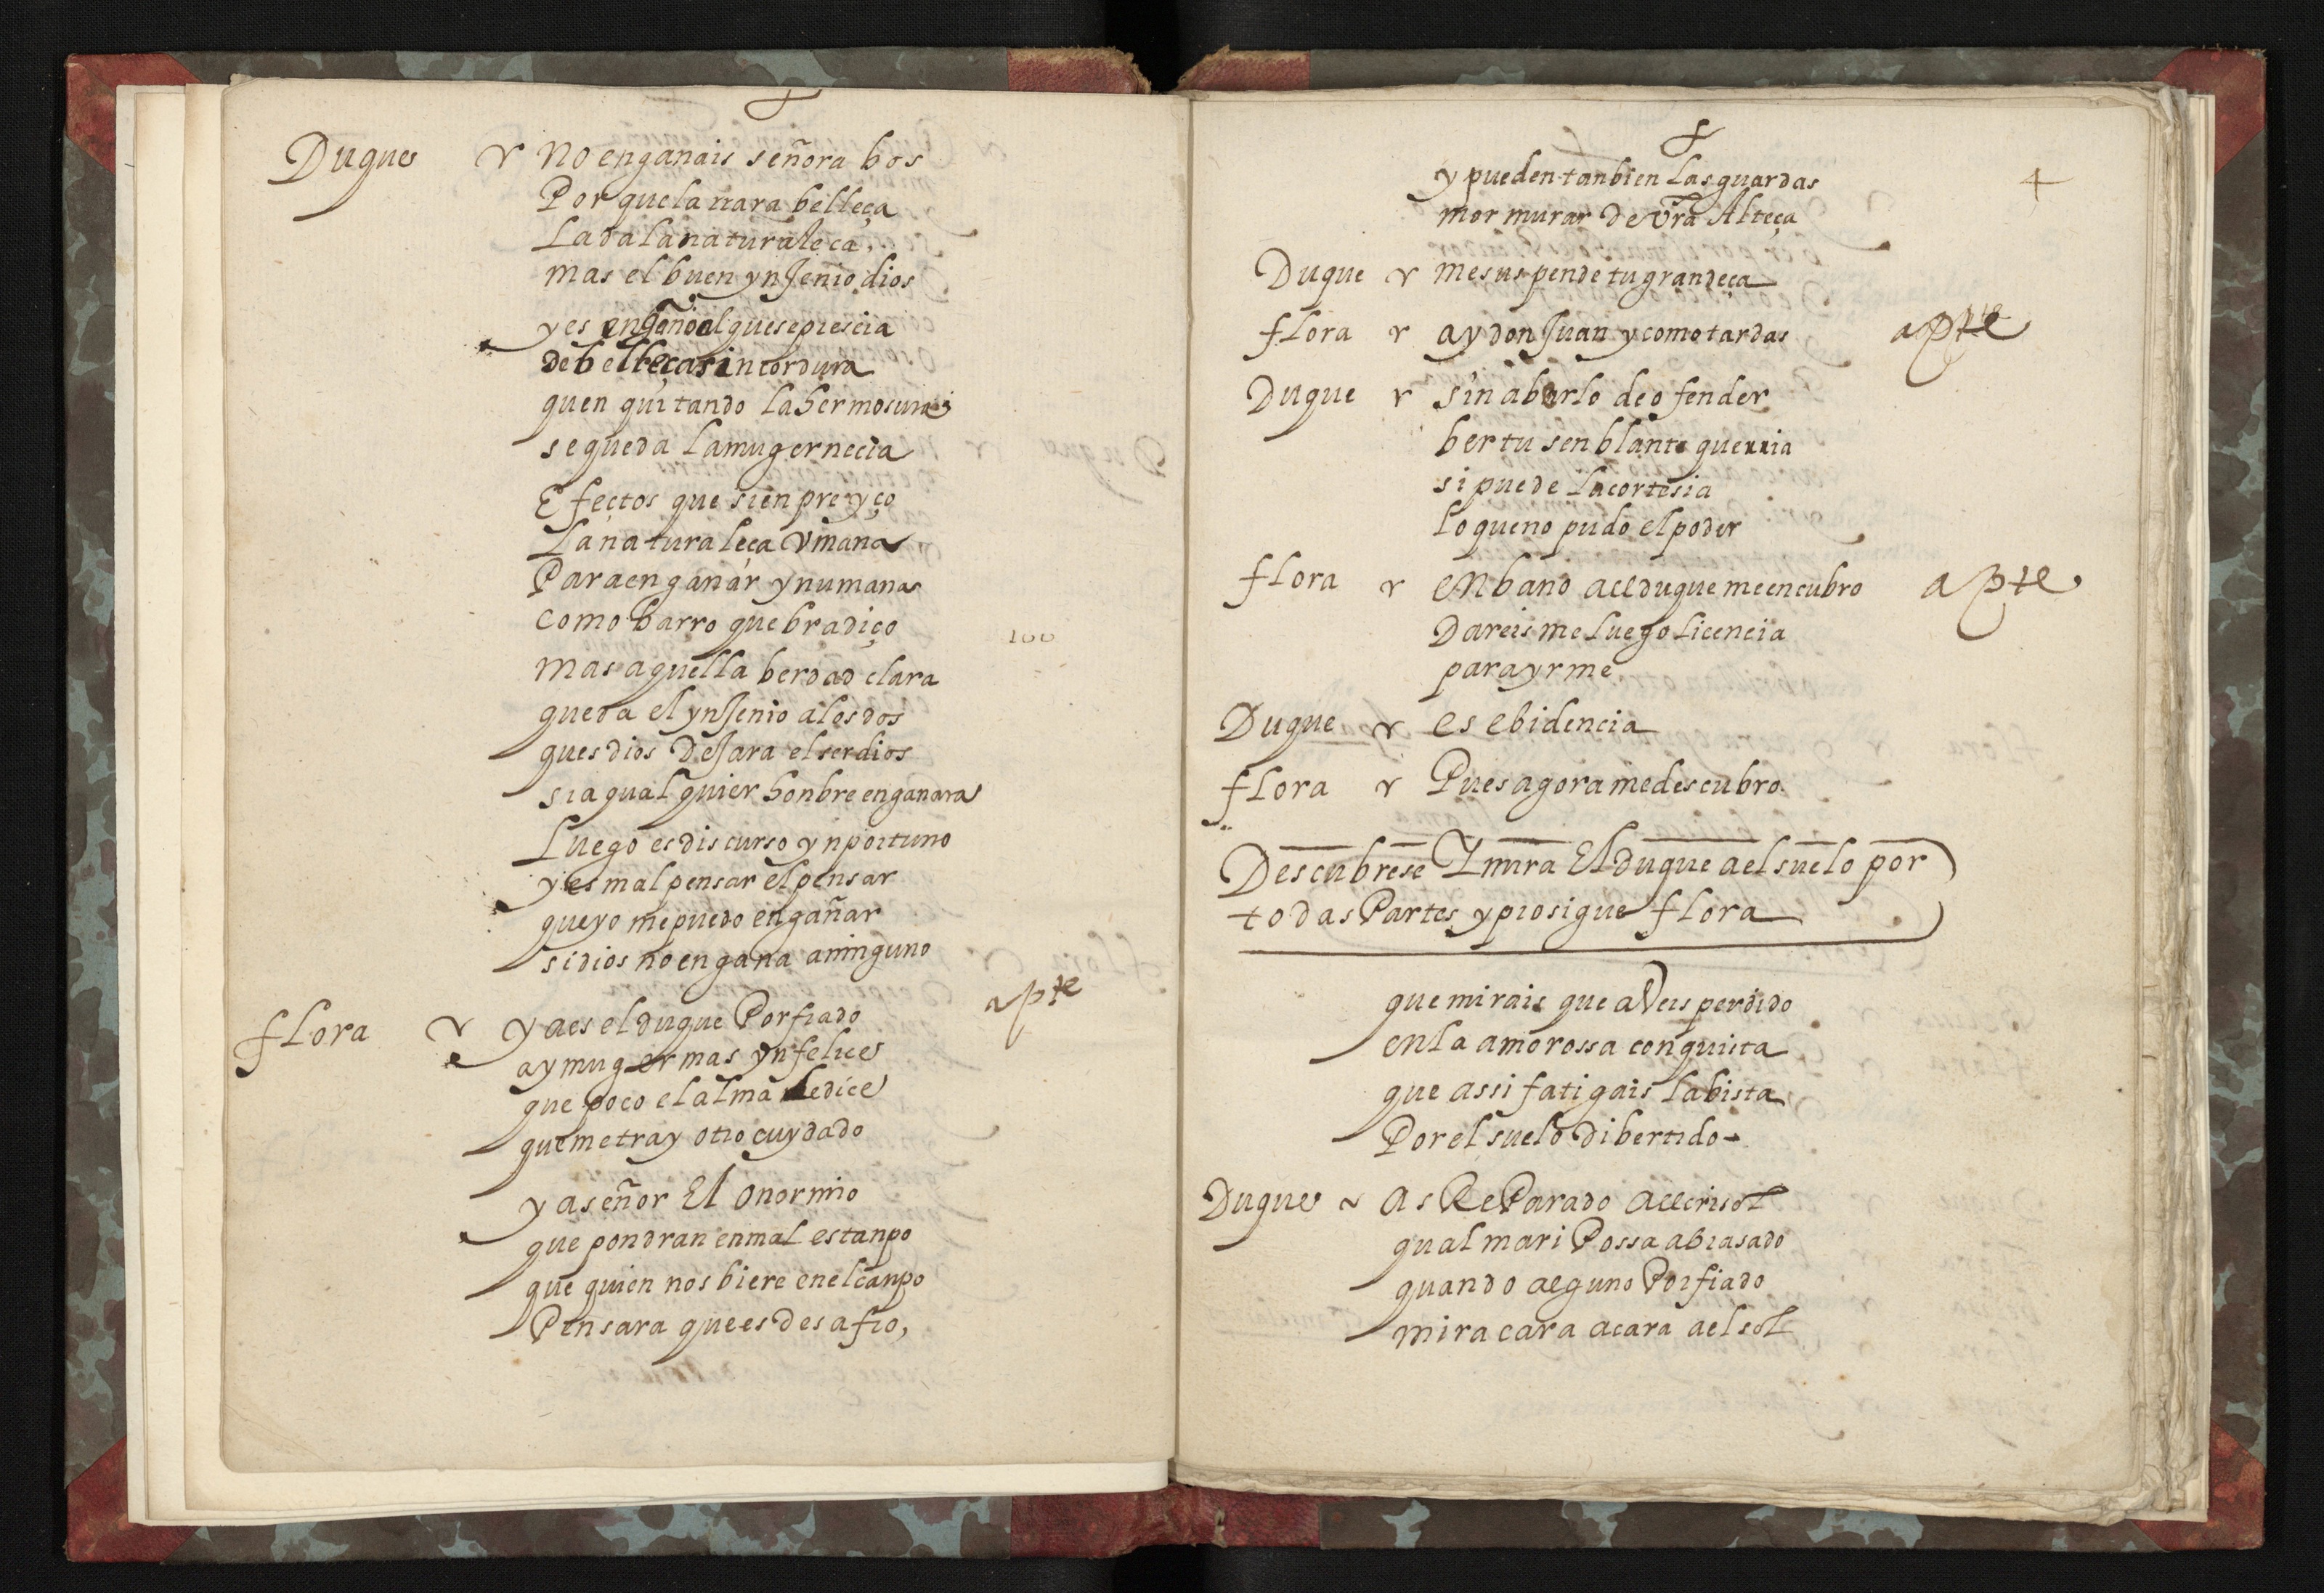 Duque r no enganais señora bos
Por que la rrara belleça
La da la naturaleca,
mas el buen ynJenio dios
y es engaño el que se prescia
de belleça sin cordura
quen quitando la hermosura
se queda la muger necia
Efectos que sienpre yço
La naturaleça Vmana
Para enganar ynumana
como barro quebradiço
100
mas aquella berdad clara
queda el ynJenio a los dos
ques dios deJara el ser dios
si a qual quier honbre enganara
Luego es discurso ynportuno
y es mal pensar el pensar
que yo me puedo engañar
si dios no engana a ninguno
flora r ya es el duque Porfiado apte
ay muger mas ynfelice
que poco el alma le dice
que me tray otro cuydado
ya señor El onor mio
que pondran en mal estanpo
que quien nos biere en el canpo
Pensara que es desafio,
4
y pueden tanbien las guardas
mormurar de vra Alteça
Duque r me suspende tu grandeça
flora r ay don Juan y como tardas apte
Duque r sin aberlo de ofender
ber tu senblante querria
si puede la cortesia
lo que no pudo el poder
flora r en bano ael duque me encubro apte
Dareis me luego licencia
para yrme
Duque r es ebidencia
flora r Pues agora me descubro
Descubrese Y mira El duque a el suelo por
todas Partes y prosigue flora
que mirais que aVeis perdido
en la amorossa conquista
que assi fatigais la bista
Por el suelo dibertido
Duque r as ReParado ael crisol
qual mari Possa abrasado
quando alguno Porfiado
mira cara a cara a el sol